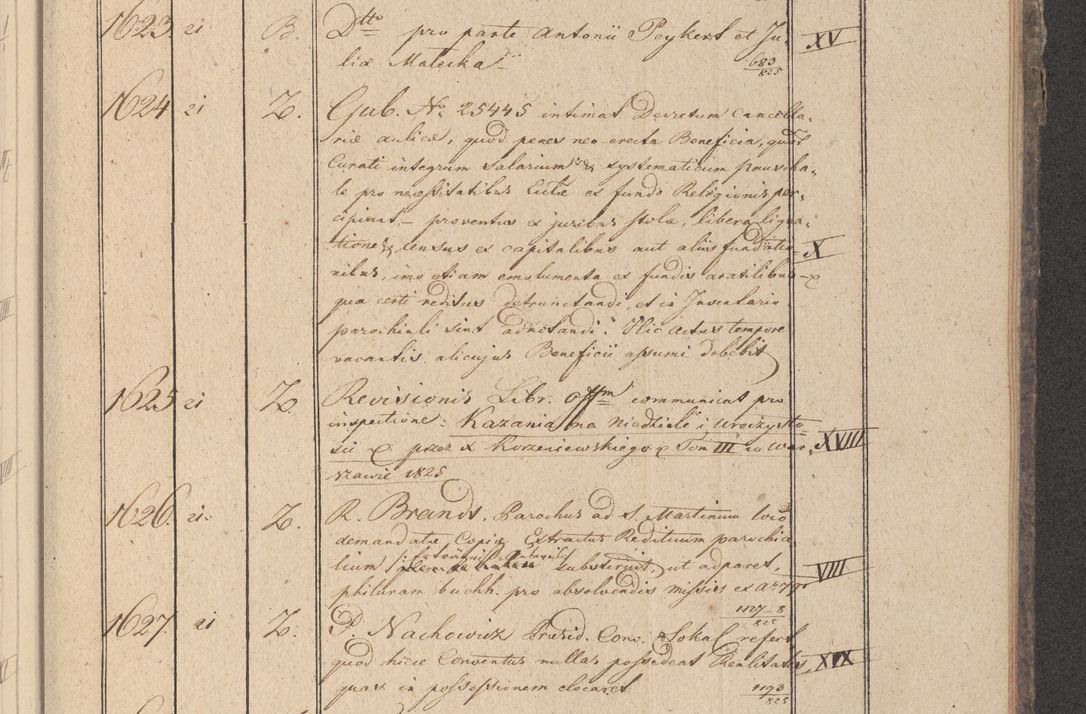 1623. ei B. Dtto pro parte Antonii Peykert et Ju- XV
liæ Malecka 683/825
1624 ei Z. Gub. No. 25445 intimat Decretum Cancella-
riæ aulicæ, quod penes neo erecta Beneficia, quot
Curati integrum Salarium & systematicum pauscha-
le pro necessitatibus Eccl̄æ ex fundo Religionis per-
cipiant, – proventus ex juribus stolæ, libera ligna-
tione &, census ex capitalibus aut aliis fundatio- X
nibus, imo etiam emolumenta ex fundis aratilibus
qua certi reditus detruncandi, et in Inventario
parochiali sint adnotandi. Hic actus tempore
vacantis alicujus Beneficii assumi debebit
1625 ei Z. Revisionis Libr. Offm communicat pro
inspectione: Kazania na Niedziele i Uroczysto-
sci przez X Korzeniewskiego Tom III w War- XVIII
szawie 1825
1626. ei. Z. R. Brands. Parochus ad S. Martinum loco
demandatæ Copiæ Extractus Redituum parochia
lium substernit, ut adparet, VIII
philuram buchh. pro absolvendis missis ex Ao 797
1127-8/825
1627. ei Z. P. Nachowicz Præsid. Conv. Sokal refert
quod hicce Conventus nullas possedeat Realitates, XIX
quas in possessionem elocaret 1193/825